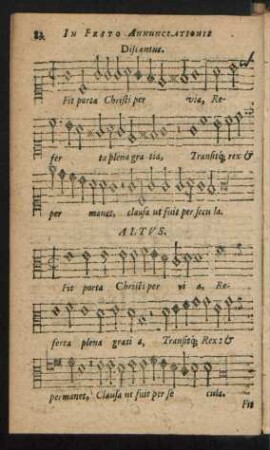 84 IN FESTO ANNUNCIATIONIS
Discantus.
Fit porta Christi per via, Re-
fer ta plena gra tia, Transitq; rex &
per manet, clausa ut fuit per secu la.
ALTVS.
Fit porta Christi per vi a, Re-
ferta plena grati a, Transitq; Rex: &
permanet, Clausa ut fuit per se cula.
Fit